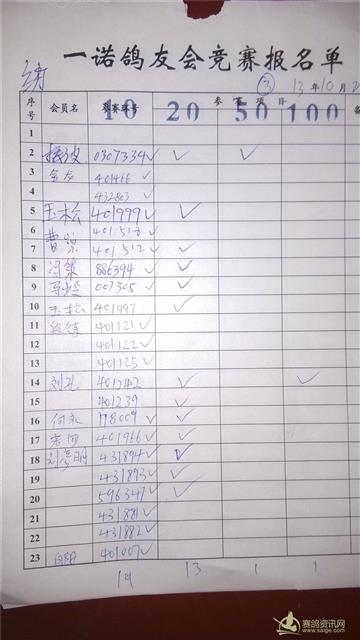 一诺鸽友会竞赛报名单
③ 13年10月2
序号 会员名 参赛项目
10 20 50 100 备
1
2 0307334 ✓ ✓ ✓
3 401466 ✓
4 432803 ✓
5 王松 401999 ✓ ✓
6 401518 ✓
7 曹 401512 ✓ ✓
8 冯策 886394 ✓ ✓
9 007305 ✓ ✓
10 王松 401997 ✓
11 401121 ✓
12 401122 ✓
13 401125 ✓
14 刘孔 401242 ✓ ✓
15 401239 ✓
16 何 178009 ✓ ✓
17 401966 ✓ ✓
18 刘 431894 ✓ ✓
19 431893 ✓ ✓
20 596347 ✓ ✓
21 431881 ✓
22 431882 ✓
23 向阳 401007 ✓
19 13 1 1
赛鸽资讯网
www.saige.com